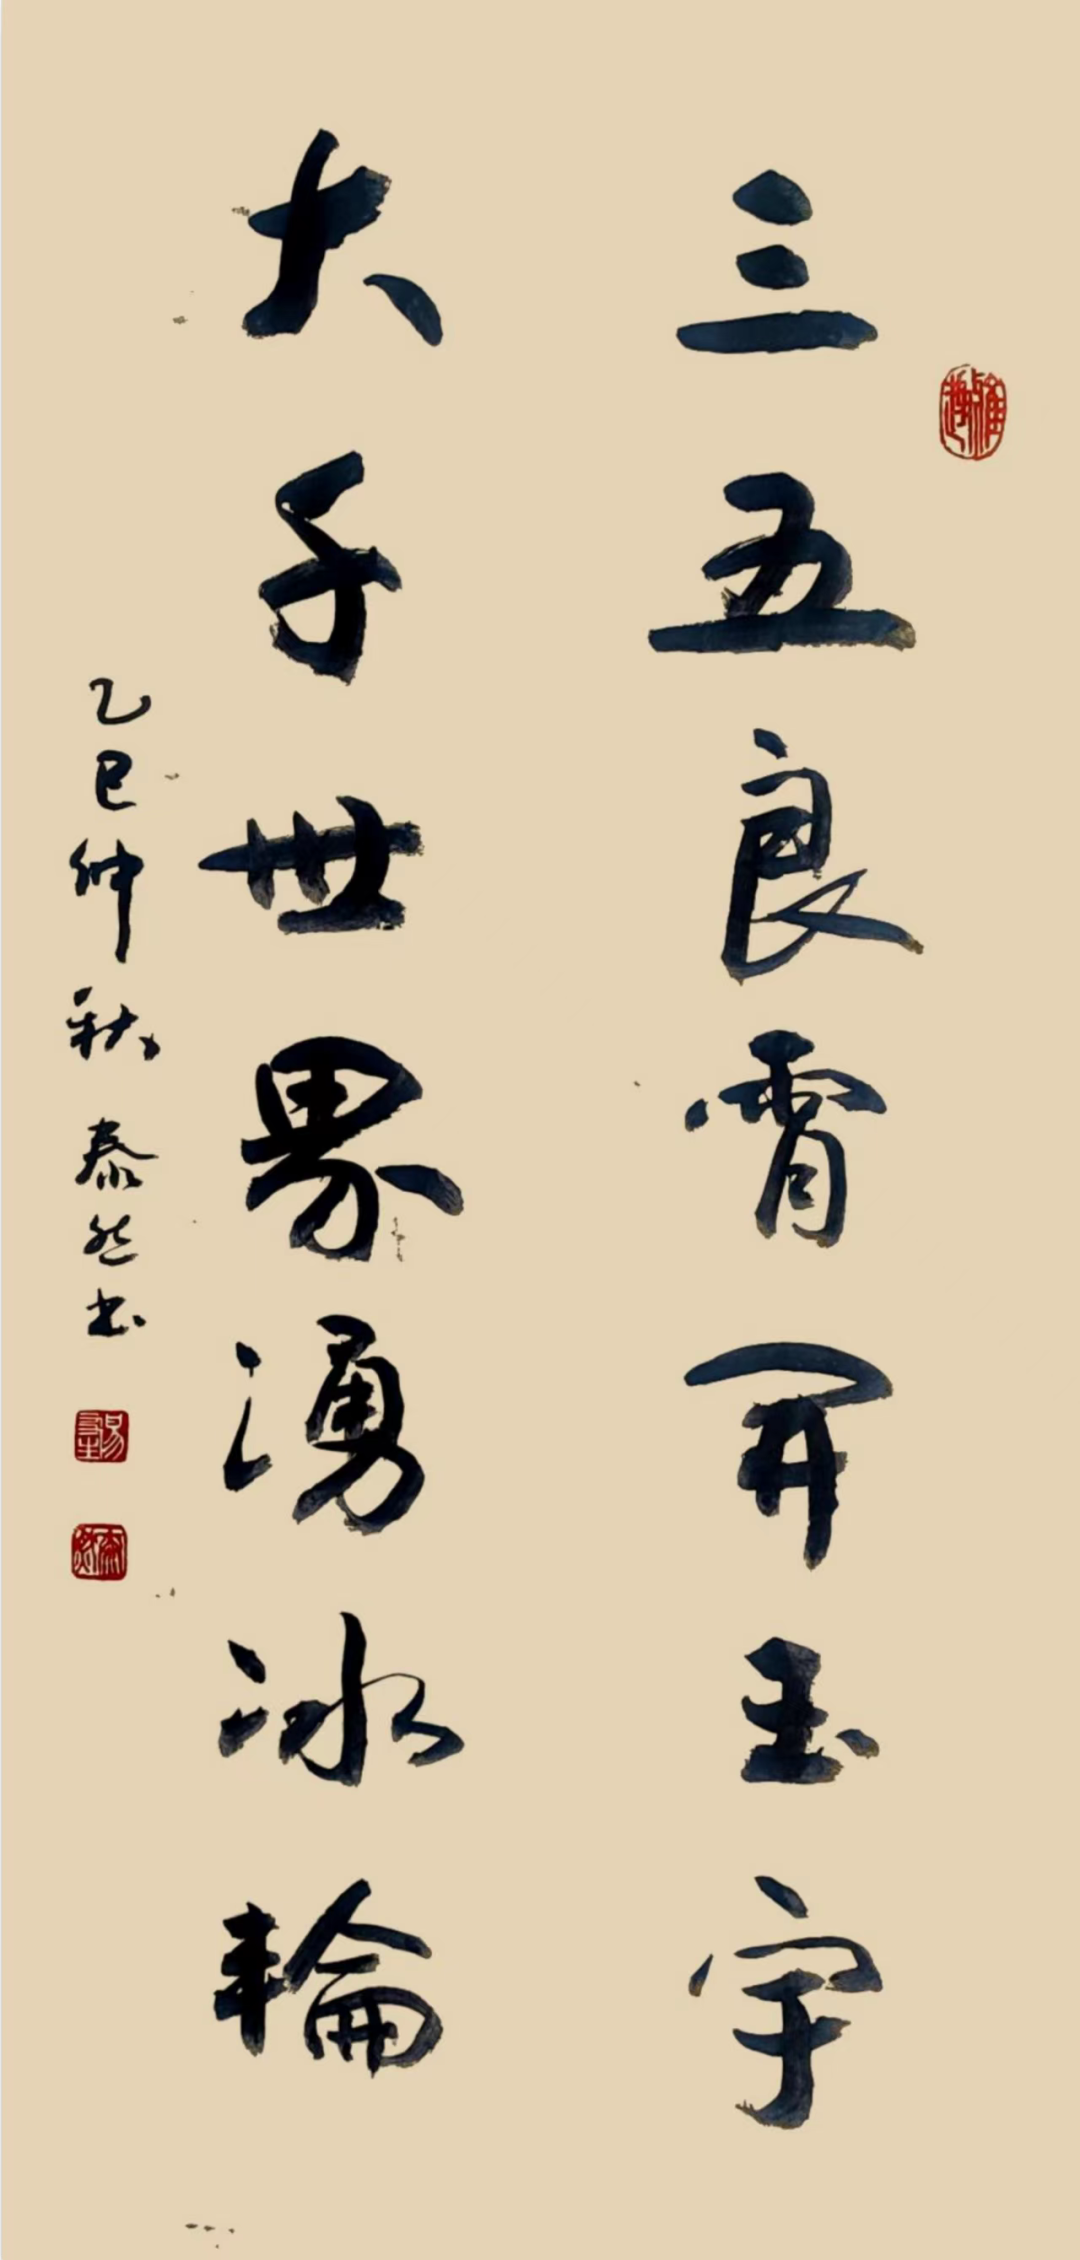 三五良霄開玉宇
大千世界湧冰輪
乙巳仲秋 泰然书